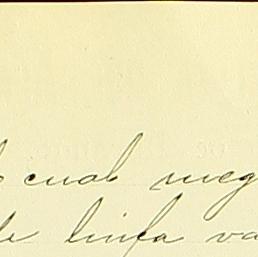 cual meg
de linfa va